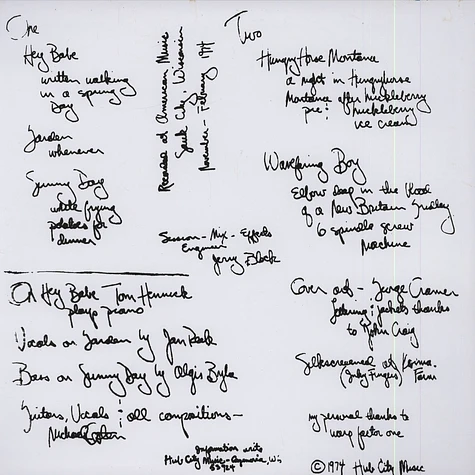 One
Hey Babe
written walking
in a spring
Day
Garden
whenever
Sunny Day
while frying
potatoes for
dinner
Recorded at American Music
Sauk City, Wisconsin
November - February 1974
Two
Hungry Horse Montana
a night in Hungryhorse
Montana after huckleberry
pie & huckleberry
ice cream
Wayfaring Boy
Elbow deep in the
of a New Britain Gridley
6 spindle screw
machine
Session - Mix - Effects
Engineer
Jerry Block
On Hey Babe Tom
plays piano
Vocals on Garden by Jan
Bass on Sunny Day by Algis
Guitars, Vocals & all compositions -
Michael
Cover art - George Cramer
Lettering & jackets thanks
to John Craig
Silkscreened at Karma
Farm
my personal thanks to
warp factor one
Information write
Hub City Music - Wi.
© 1974 Hub City Music